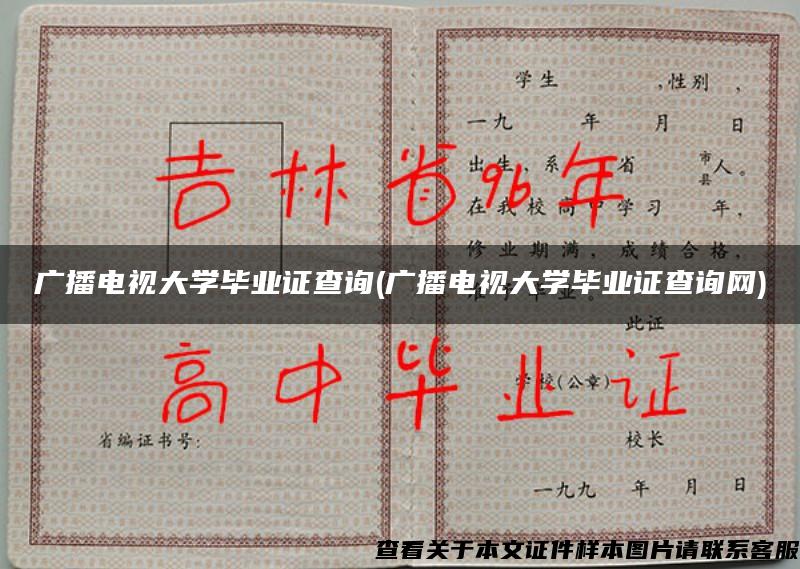 学生 ,性别 ,
一九 年 月 日
出生，系 省 市县 人。
吉林省96年
在我校高中学习 年，
修业期满，成绩合格，
广播电视大学毕业证查询(广播电视大学毕业证查询网)
准予毕业。
此证
高中毕业证
学校(公章)
省编证书号:
校长
一九九 年 月 日
查看关于本文证件样本图片请联系客服